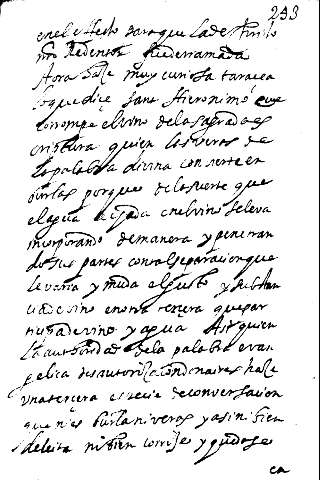 253
en el effecto para que la de Christo
nro Redentor fue derramada
Aora sale muy curiosa taracea
lo que dice sant Hieronimo que
corrompe el vino de la sagrada es
criptura quien las veras de
la palabra divina convierte en
burlas porque de la suerte que
el agua echada en el vino se leva
incorporando de manera y penetran
do sus partes con tal separacion que
le varia y muda el gusto y substan
cia de vino en otra tercera que par
ticipa de vino y agua Asi quien
la autoridad de la palabra evan
gelica desautoriza con donaires haze
una tercera especie de conversacion
que ni es burla ni veras y asi ni bien
deleita ni bien corrije y quedase
en